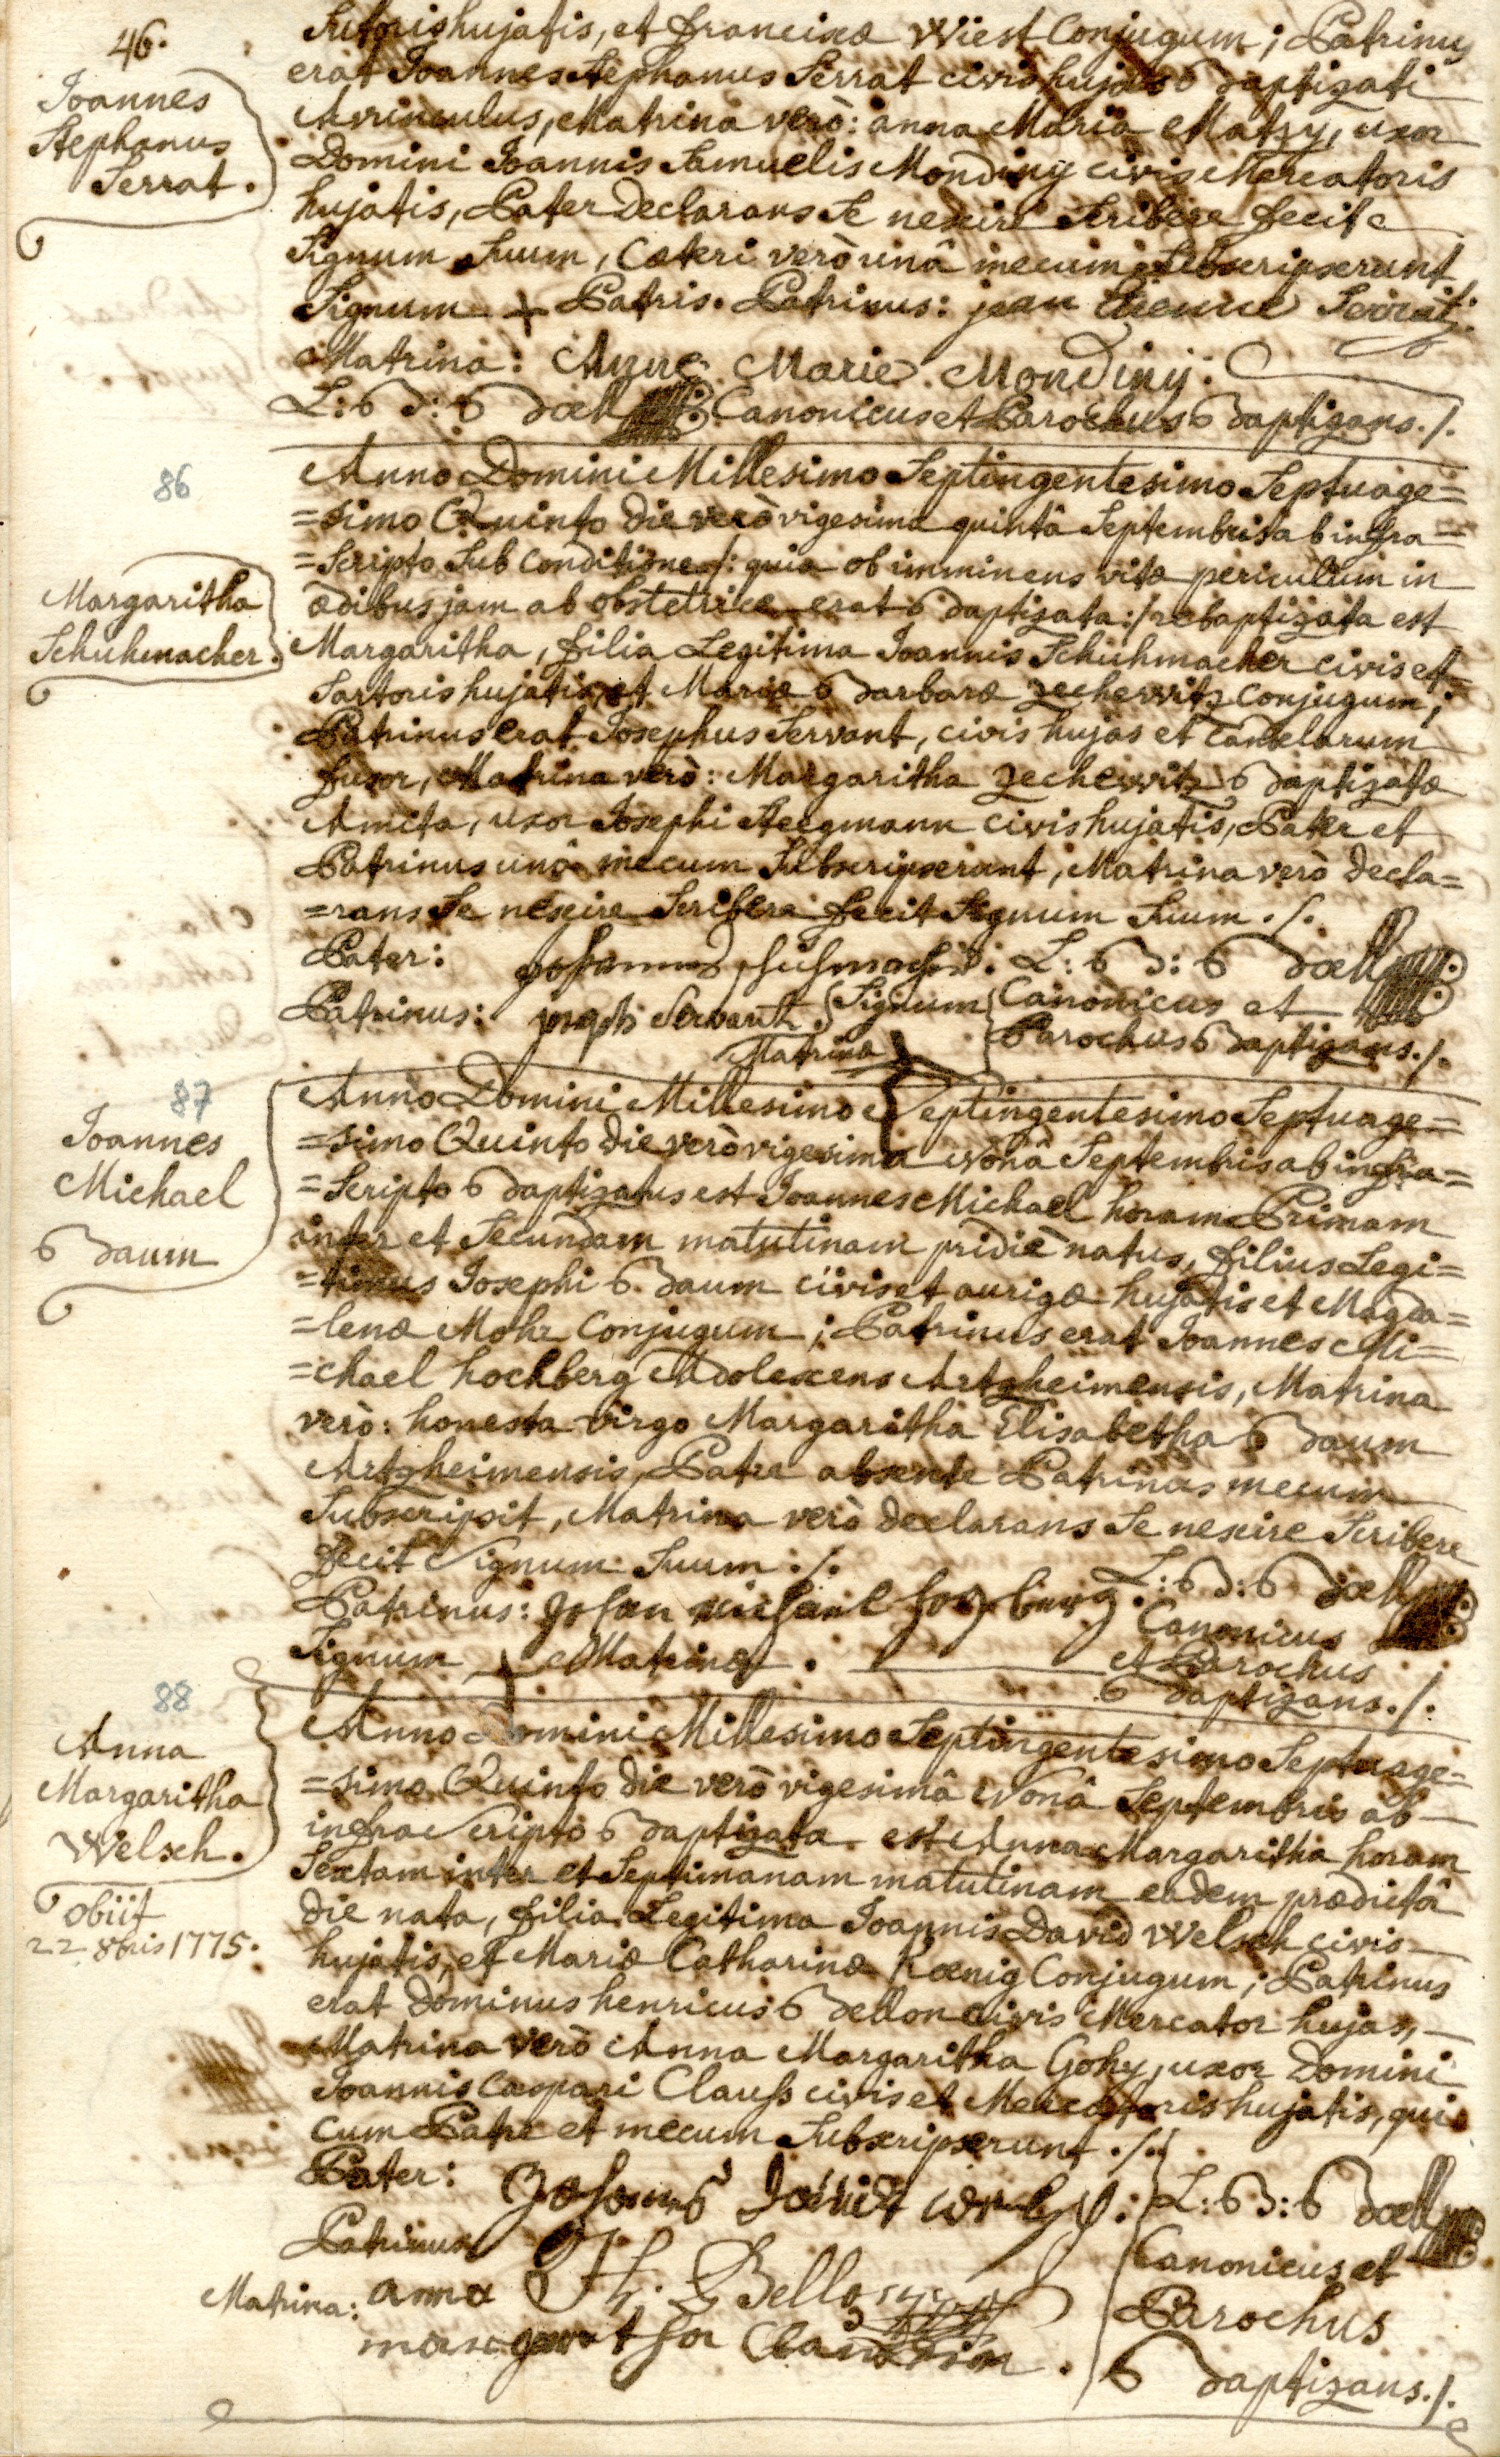 46.
Joannes
Stephanus
Serrat.
Sutoris hujatis, et Franciscæ Wiest Conjugum; Patrinus
erat Joannes Stephanus Serrat civis hujas Baptizati
Avunculus, Matrina verò: anna Maria Matzy, uxor
Domini Joannis Samuelis Mondiny civis Mercatoris
hujatis, Pater declarans Se nescire Scribere fecit
Signum Suum, Cæteri verò unâ mecum Subscripserunt
Signum + Patris. Patrinus: jean Etienne Serrat.
Matrina: Anne Marie Mondiny.
L: B: Boell Canonicus et Parochus Baptizans./.
86
Margaritha
Schuhmacher.
Anno Domini Millesimo Septingentesimo Septuage=
=simo Quinto die verò vigesima quintâ Septembris ab infra=
=Scripto Sub Conditione /: quia ob imminens vitæ periculum in
ædibus jam ab obstetrice erat Baptizata :/ rebaptizata est
Margaritha, filia Legitima Joannis Schuhmacher civis et
Sartoris hujatis, et Mariæ Barbaræ Zechewitz Conjugum;
Patrinus erat Josephus Servant, civis hujas et Candelarum
fusor, Matrina verò: Margaritha Zechewitz Baptizatæ
Amita, uxor Josephi Steegmann civis hujatis, Pater et
Patrinus unâ mecum Subscripserunt, Matrina verò decla=
=rans Se nescire Scribere fecit Signum Suum./.
Pater: Johannes Schuhmacher. L: B: Boell
Patrinus: joseph Servant. Signum Canonicus et
Matrinæ Parochus Baptizans./.
87
Joannes
Michael
Baum
Anno Domini Millesimo Septingentesimo Septuage=
=simo Quinto die verò vigesima Nonâ Septembris ab infra=
=Scripto Baptizatus est Joannes Michael horam Primam
inter et Secundam matutinam pridiè natus, filius Legi=
=timus Josephi Baum civis et aurigæ hujatis et Magda=
=lenæ Mohr Conjugum; Patrinus erat Joannes Mi=
=chael hochberg Adolescens Artzheimensis, Matrina
verò: honesta virgo Margaritha Elisabetha Baum
Artzheimensis, Patre absente Patrinus mecum
Subscripsit, Matrina verò declarans Se nescire Scribere
fecit Signum Suum./.
Patrinus: Johan Michael hochberg. L: B: Boell
Canonicus
Signum + Matrinæ. et Parochus
Baptizans./.
88
Anna
Margaritha
Welsch.
obiit
22 8bris 1775.
Anno Domini Millesimo Septingentesimo Septuage=
=simo Quinto die verò vigesimâ Nonâ Septembris ab
infra Scripto Baptizata est Anna Margaritha horam
Sextam inter et Septimanam matutinam eadem prædictâ
die nata, filia Legitima Joannis David Welsch civis
hujatis, et Mariæ Catharinæ Kœnig Conjugum; Patrinus
erat Dominus henricus Bellon civis Mercator hujas,
Matrina verò Anna Margaritha Gohy, uxor Domini
Joannis Caspari Clauß civis et Mercatoris hujatis, qui
cum Patre et mecum Subscripserunt./.
Pater: Johannes David Welsch. L: B: Boell
Patrinus H: Bellon Canonicus et
Matrina: anna Parochus
margretha Claussin. Baptizans./.